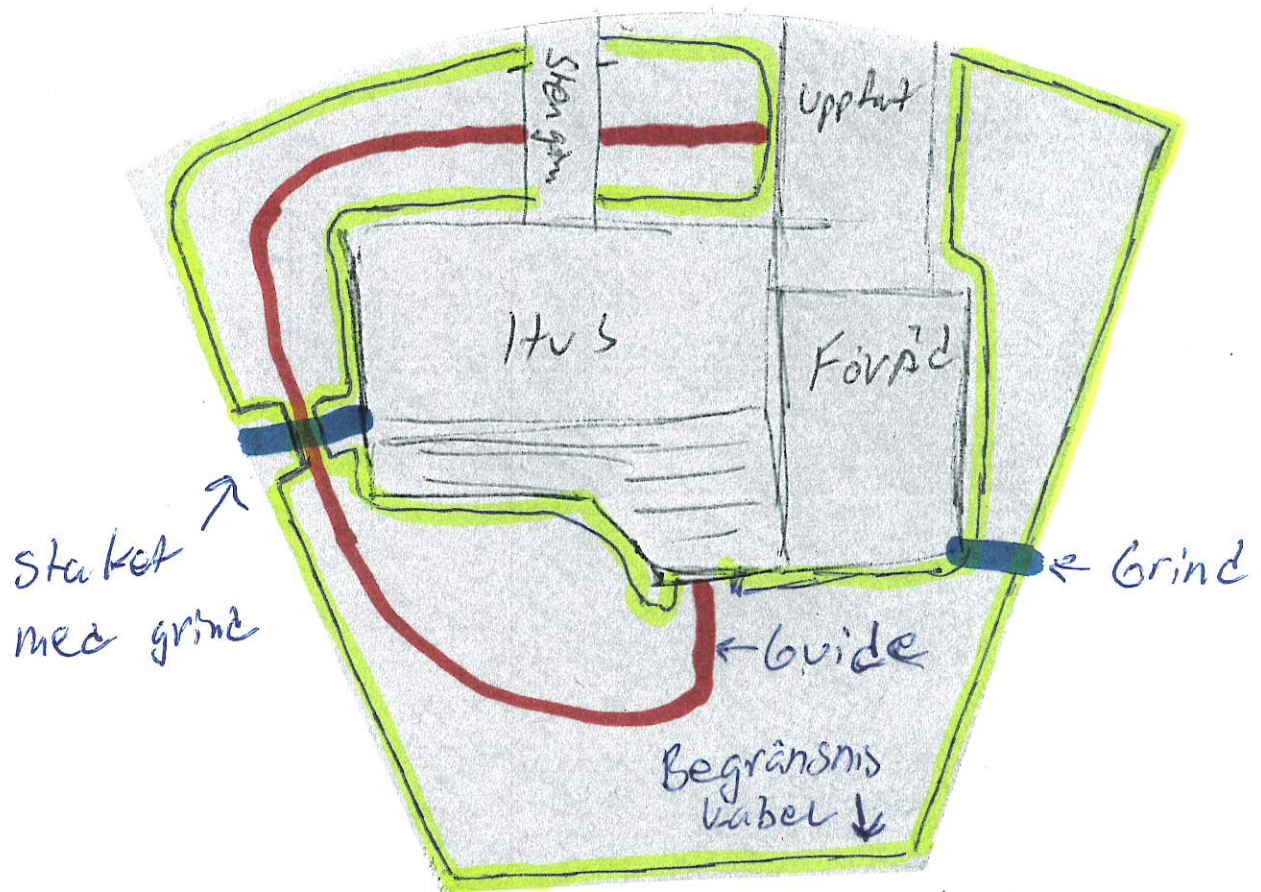 Stengån
Uppfart
Hus
Förråd
Staket
med grind
← Grind
← Guide
Begränsnis
kabel ↓